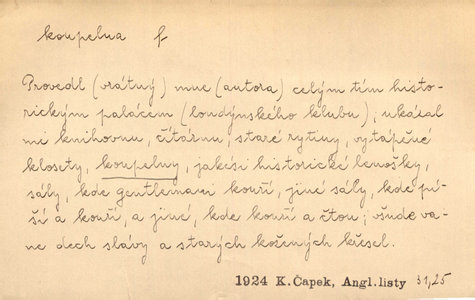 koupelna f
Provedl (vrátný) mne (autora) celým tím histo-
rickým palácem (londýnského klubu), ukázal
mi knihovnu, čítárnu, staré rytiny, vytápěné
klosety, koupelny, jakési historické lenošky,
sály, kde gentlemani kouří, jiné sály, kde pí-
ší a kouří, a jiné, kde kouří a čtou; všude va-
ne dech slávy a starých kožených křesel.
1924 K.Čapek, Angl.listy 31,25